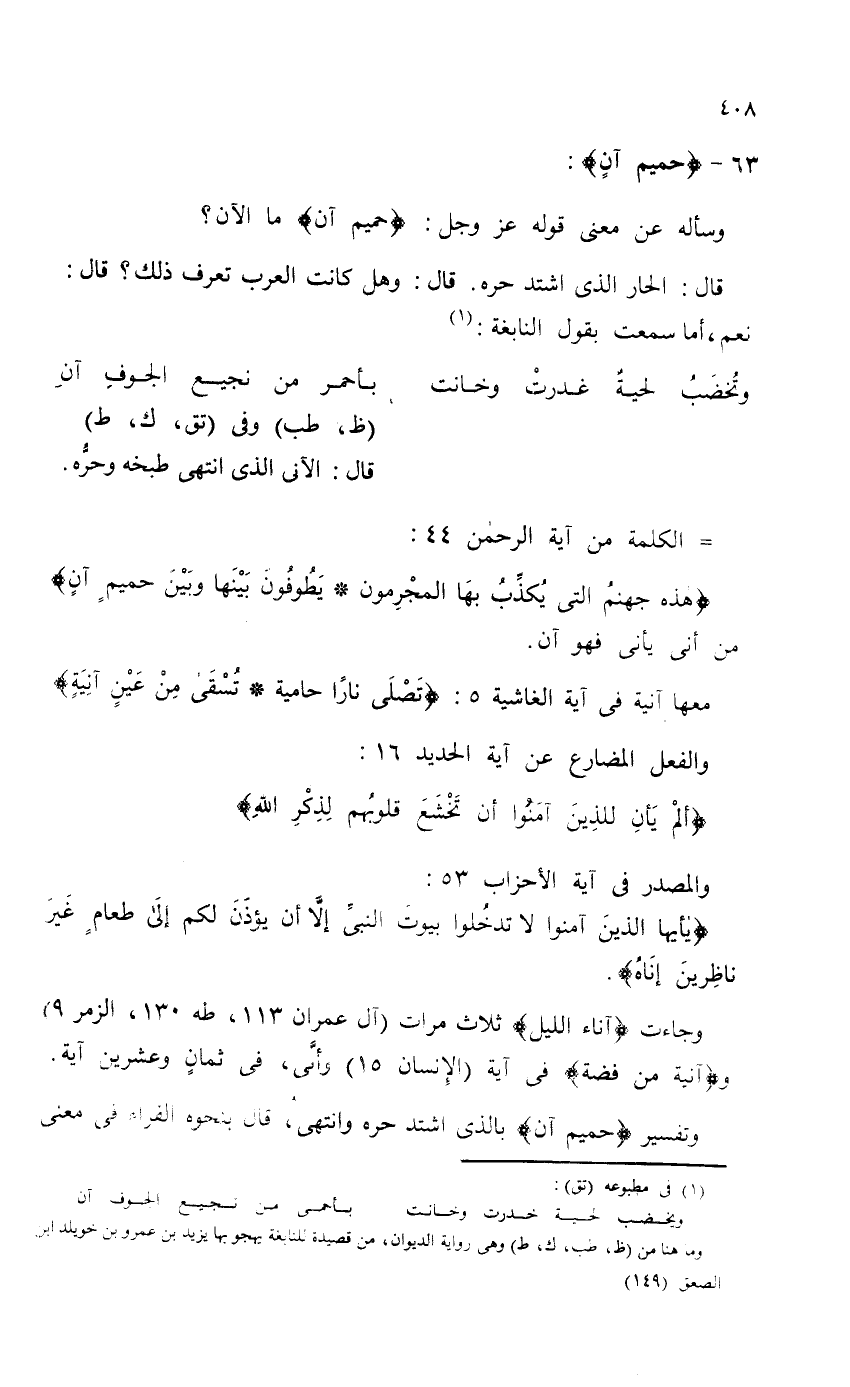 ٤٠٨
٦٣ - ﴿حميم آنٍ﴾ :
وسأله عن معنى قوله عز وجل : ﴿حميم آن﴾ ما الآن؟
قال : الحار الذى اشتد حره. قال : وهل كانت العرب تعرف ذلك؟ قال :
نعم، أما سمعت بقول النابغة :(١)
وتُخضَبُ لحيةٌ غدرتْ وخانت بأحمر من نجيع الجوفِ آنِ
(ظ، طب) وفى (تق، ك، ط)
قال : الآنى الذى انتهى طبخه وحرُّه.
= الكلمة من آية الرحمٰن ٤٤ :
﴿هٰذه جهنمُ التى يُكذِّبُ بهَا المجْرِمون * يَطُوفُونَ بَيْنَها وبَيْنَ حميمٍ آنٍ﴾
من أنى يأنى فهو آن.
معها آنية فى آية الغاشية ٥ : ﴿تَصْلَى نارًا حامية * تُسْقَىٰ مِنْ عَيْنٍ آنِيَةٍ﴾
والفعل المضارع عن آية الحديد ١٦ :
﴿ألمْ يَأنِ للذِينَ آمَنُوا أن تَخْشَعَ قلوبُهم لِذِكْرِ اللّهِ﴾
والمصدر فى آية الأحزاب ٥٣ :
﴿يٰأيها الذينَ آمنوا لا تدخُلوا بيوتَ النبىِّ إلَّا أن يؤذَنَ لكم إلَىٰ طعامٍ غَيرَ
ناظِرِينَ إنَاهُ﴾.
وجاءت ﴿آناء الليل﴾ ثلاث مرات (آل عمران ١١٣، طه ١٣٠، الزمر ٩)
و﴿آنية من فضة﴾ فى آية (الإنسان ١٥) وأنَّى، فى ثمانٍ وعشرين آية.
وتفسير ﴿حميم آن﴾ بالذى اشتد حره وانتهى، قال بنحوه الفراء فى معنى
(١) فى مطبوعه (تق) :
ويخضب لحية خدرت وخانت بأحمى من نجيع الجوف آن
وما هنا من (ظ، طب، ك، ط) وهى رواية الديوان، من قصيدة للنابغة يهجو بها يزيد بن عمرو بن خويلد ابن
الصعق (١٤٩)